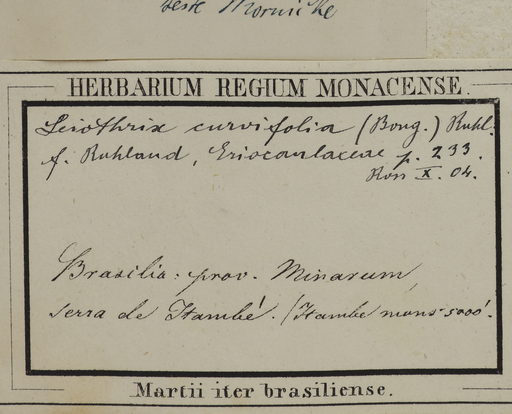 teste Mornicke
HERBARIUM REGIUM MONACENSE.
Leiothrix curvifolia (Bong.) Ruhl.
f. Ruhland, Eriocaulaceae p. 233.
Ross X. 04.
Brasilia: prov. Minarum,
serra de Itambé. (Itambe mons 5000'.
Martii iter brasiliense.